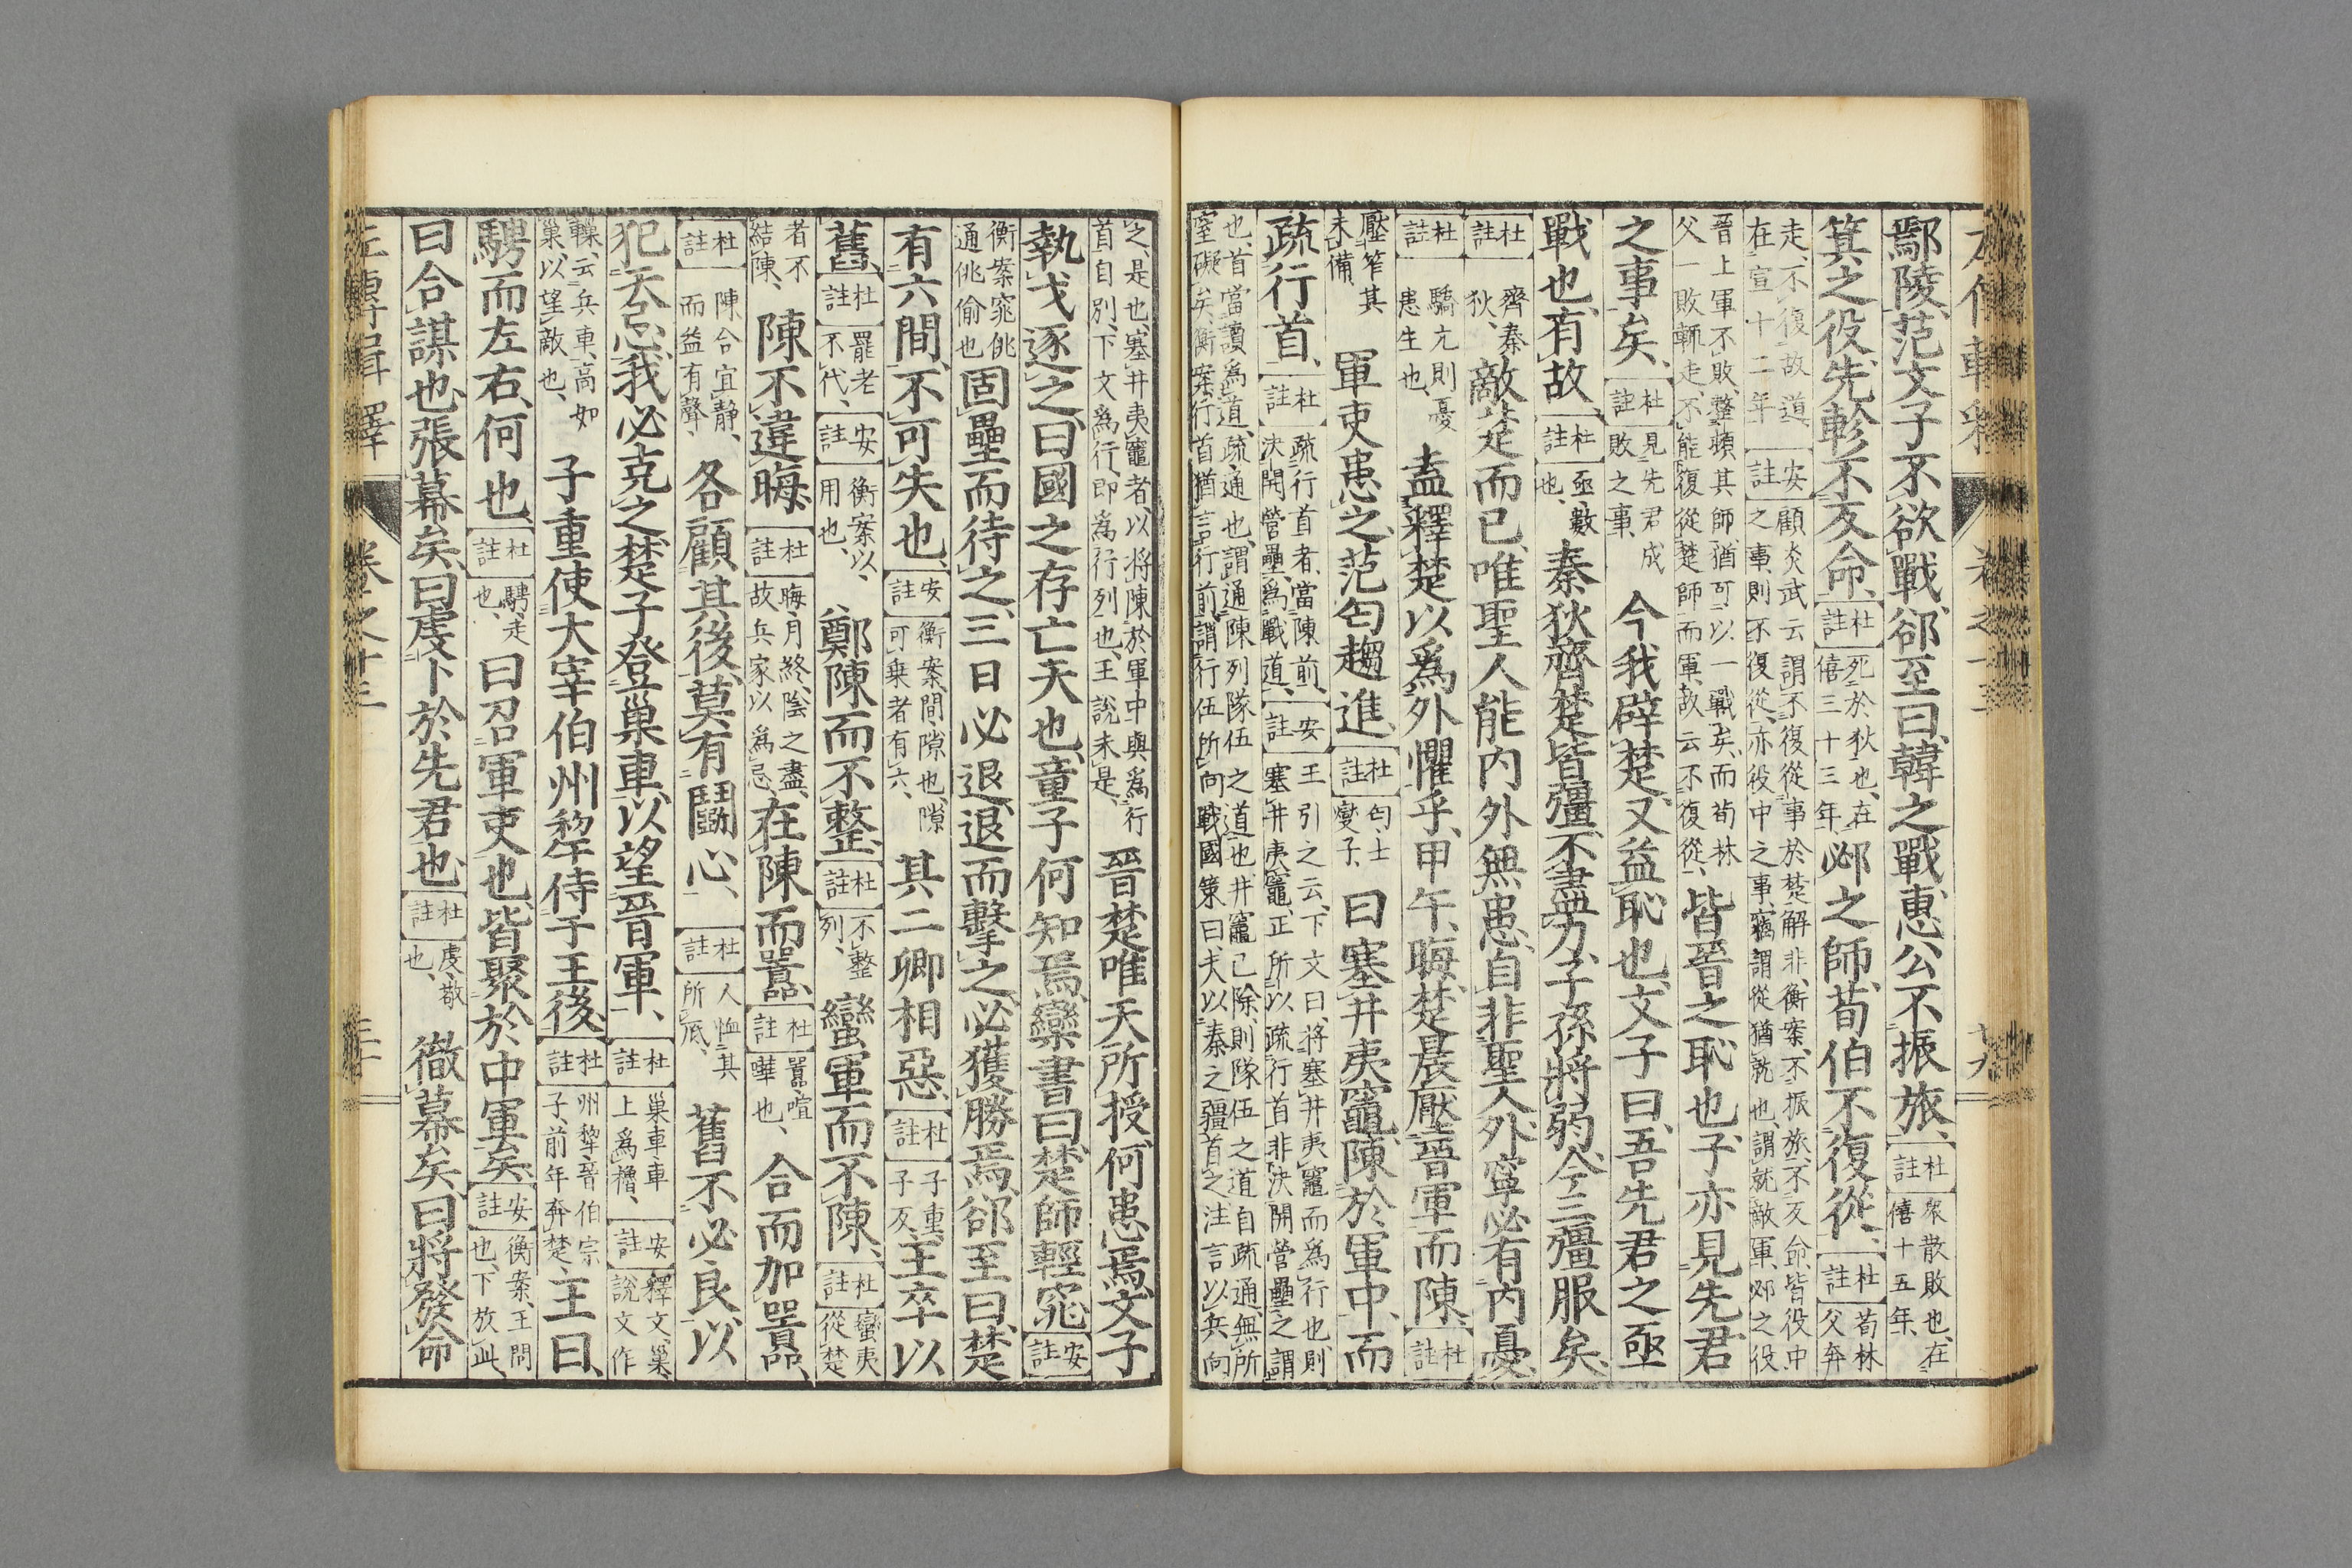 左傳輯釋 卷之十三 十九
鄢陵、范文子不欲戰、郤至曰、韓之戰、惠公不振旅、杜註衆散敗也、在僖十五年、
箕之役、先軫不反命、杜註死於狄也、在僖三十三年、邲之師、荀伯不復從、杜註荀林父奔
走、不復故道、在宣十二年、安註顧炎武云、謂不復從事於楚、解非、衡案、不振旅、不反命、皆役中之事、則不復從、亦役中之事、竊謂從猶就也、謂就敵軍、邲之役
晉上軍不敗、整頓其師、猶可以一戰矣、而荀林父一敗輒走、不能復從楚師而軍、故云不復從、皆晉之恥也、子亦見先君
之事矣、杜註見先君成敗之事、今我辟楚、又益恥也、文子曰、吾先君之亟
戰也、有故、杜註亟、數也、秦狄齊楚皆彊、不盡力、子孫將弱、今三彊服矣、
杜註齊秦狄、敵楚而已、唯聖人能內外無患、自非聖人、外寧必有內憂、
杜註驕亢則憂患生也、盍釋楚以爲外懼乎、甲午、晦、楚晨壓晉軍而陳、杜註
壓笮其未備、軍吏患之、范匄趨進、杜註匄、士燮子、曰塞井夷竈、陳於軍中、而
疏行首、杜註疏行首者、當陳前、決開營壘、爲戰道、安註王引之云、下文曰、將塞井夷竈而爲行也、則塞井夷竈、正所以疏行首、非決開營壘之謂
也、首當讀爲道、疏、通也、謂通陳列隊伍之道也、井竈已除、則隊伍之道自疏通、無所窒礙矣、衡案、行首猶言行前、謂行伍所向、戰國策曰、夫以秦之彊首之、注言以兵向
之、是也、塞井夷竈者、以將陳於軍中與爲行首自別、下文爲行、即爲行列也、王說未是、晉楚唯天所授、何患焉、文子
執戈逐之曰、國之存亡天也、童子何知焉、欒書曰、楚師輕窕、安註
衡案、窕佻通、佻、偷也、固壘而待之、三日必退、退而擊之、必獲勝焉、郤至曰、楚
有六間、不可失也、安註衡案、間、隙也、隙可乗者有六、其二卿相惡、杜註子重、子反、王卒以
舊、杜註罷老不代、安註衡案、以、用也、鄭陳而不整、杜註不整列、蠻軍而不陳、杜註蠻夷從楚
者不結陳、陳不違晦、杜註晦、月終、陰之盡、故兵家以爲忌、在陳而嚻、杜註嚻、喧嘩也、合而加嚻、
杜註陳合宜靜、而益有聲、各顧其後、莫有鬬心、杜註人恤其所底、舊不必良、以
犯天忌、我必克之、楚子登巢車、以望晉軍、杜註巢車、車上爲櫓、安註釋文、巢、說文作
轈、云兵車、高如巢、以望敵也、子重使大宰伯州犂侍于王後、杜註州犂、晉伯宗子、前年奔楚、王曰、
騁而左右、何也、杜註騁、走也、曰召軍吏也、皆聚於中軍矣、安註衡案、王問也、下放此、
曰合謀也、張幕矣、曰虔卜於先君也、杜註虔、敬也、徹幕矣、曰將發命
左傳輯釋 卷之十三 二十